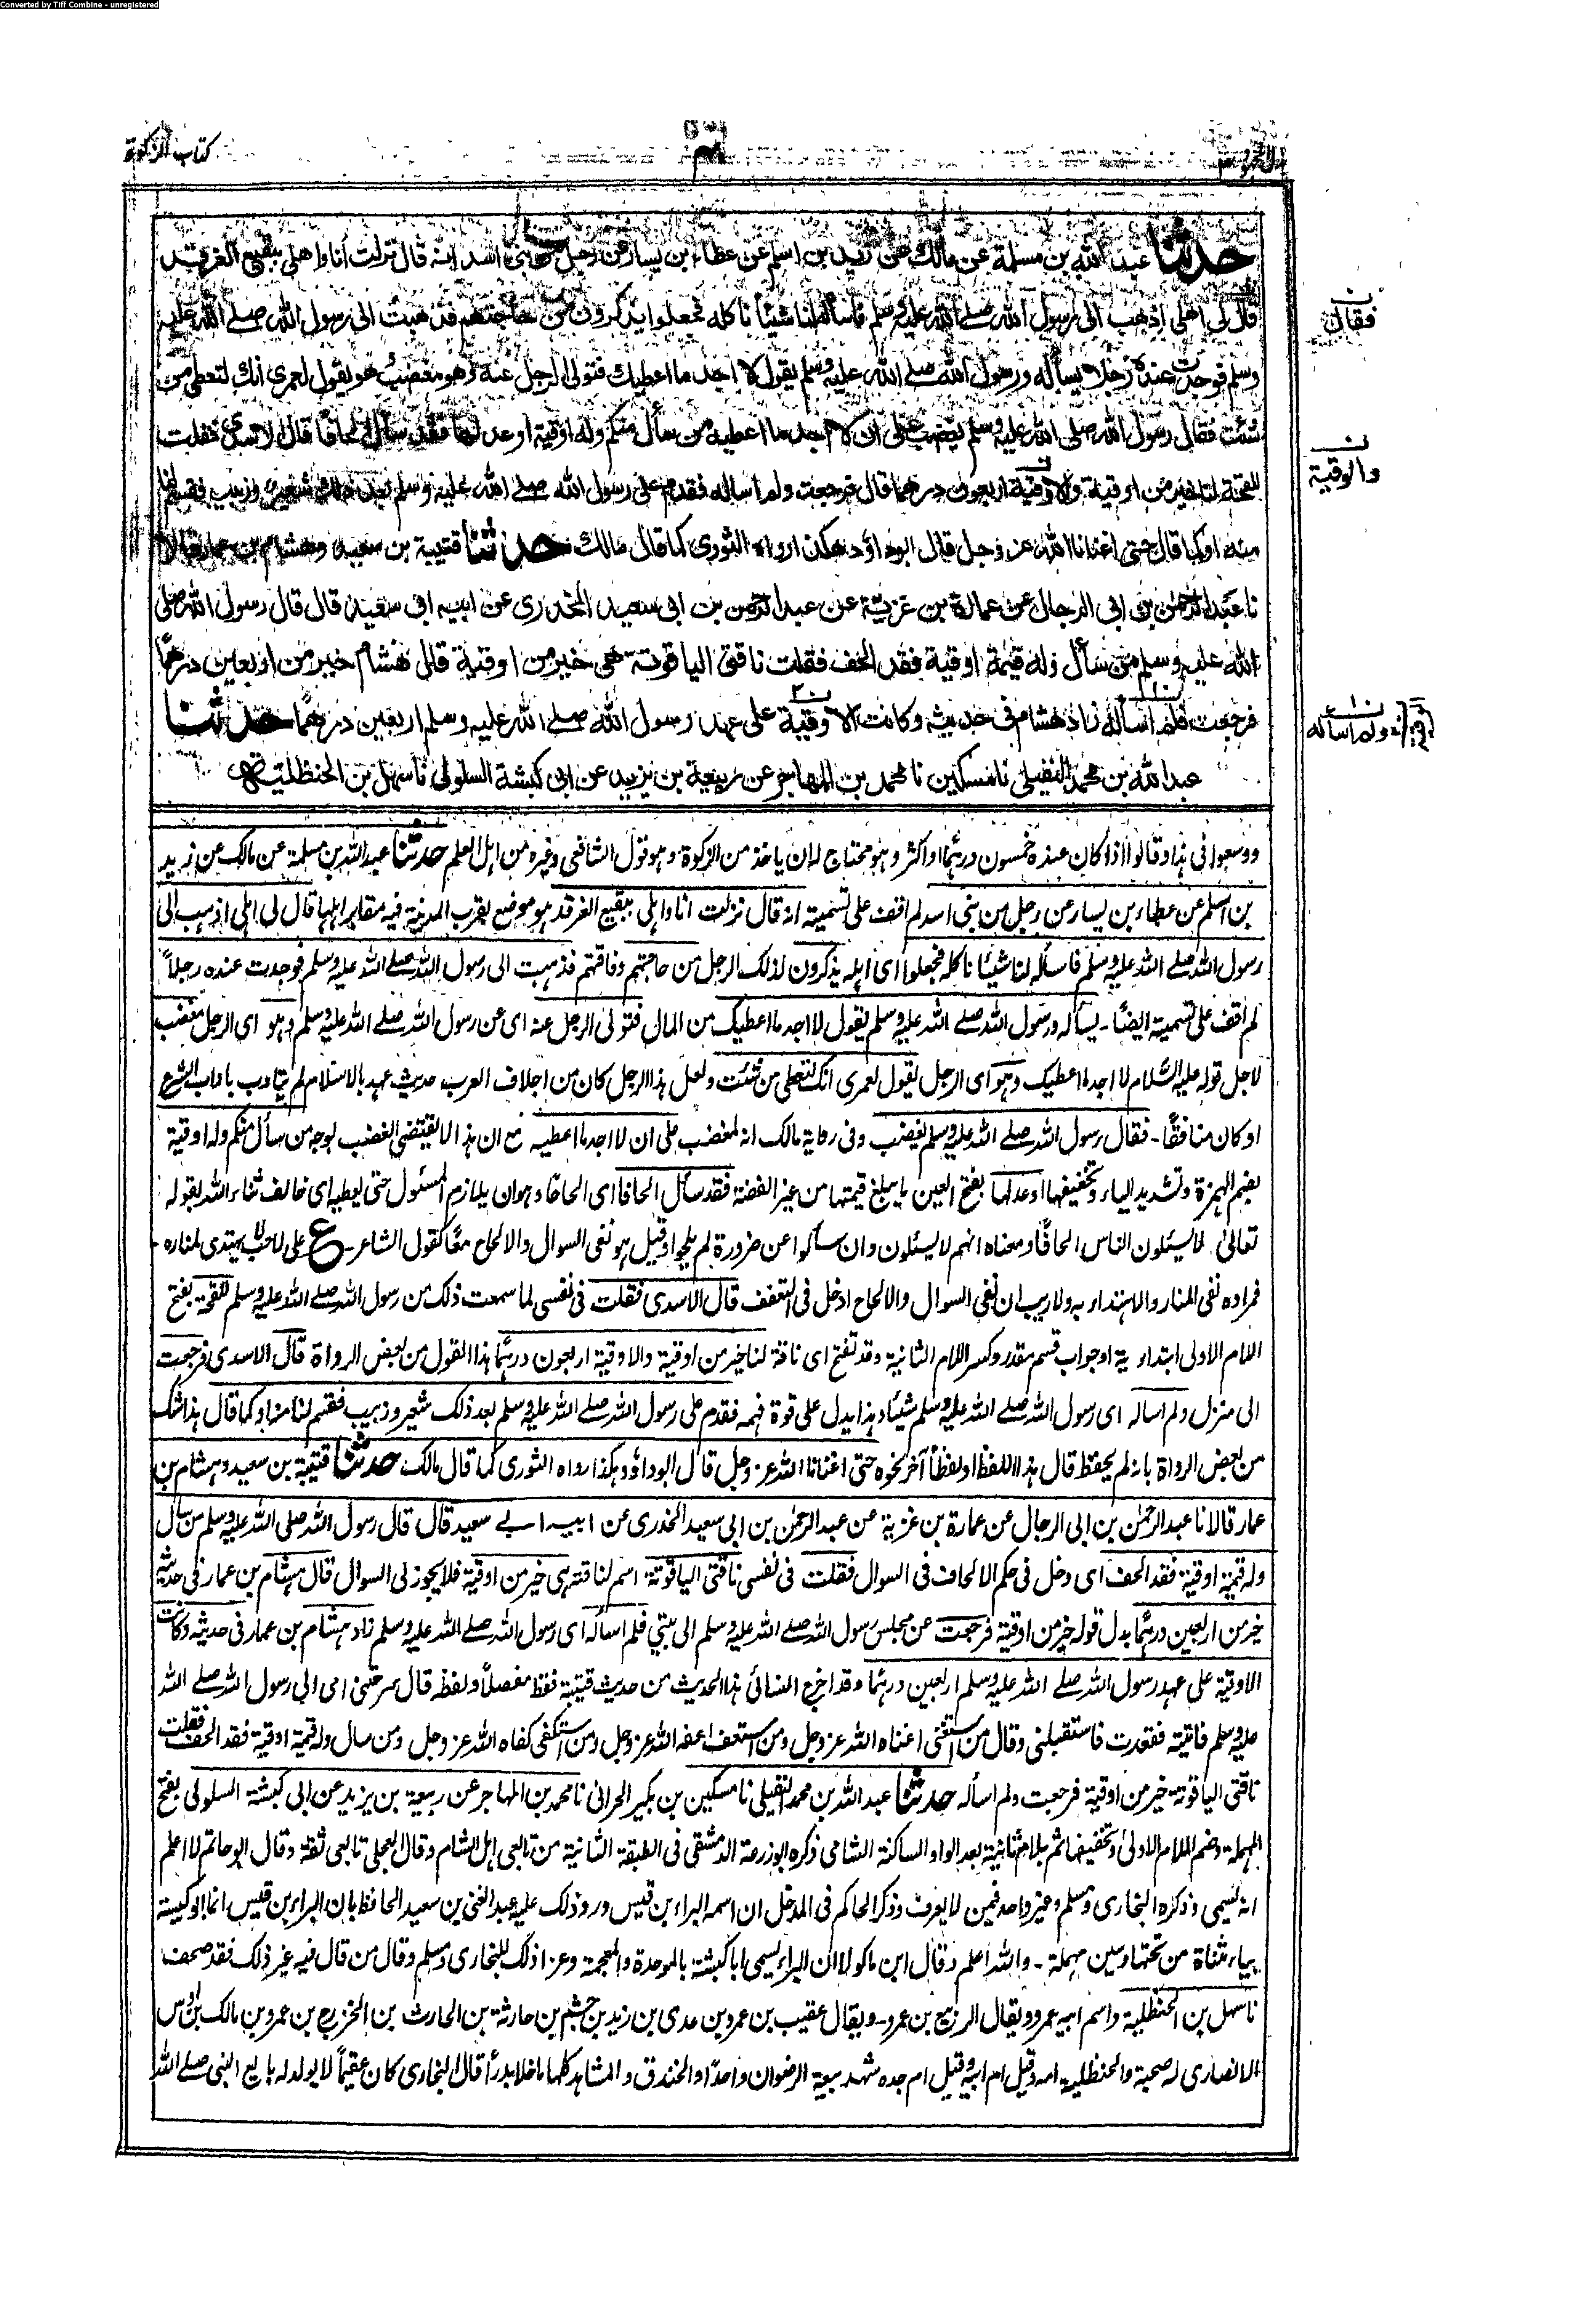 Converted by Tiff Combine - unregistered
كتاب الزكوة
حدثنا عبد الله بن مسلمة عن مالك عن زيد بن اسلم عن عطاء بن يسار عن رجل من بنى اسد انه قال نزلت أنا واهلى ببقيع الغرقد
قال لى اهلى اذهب الى رسول الله صلے الله عليه وسلم فاسأله لنا شيئاً نأكله فجعلوا يذكرون من حاجتهم فذهبت الى رسول الله صلے الله عليه
وسلم فوجدت عنده رجلا يسأله ورسول الله صلے الله عليه وسلم يقول لا اجد ما اعطيك فتولى الرجل عنه وهو مغضب وهو يقول لعمرى انك لتعطى من
شئت فقال رسول الله صلى الله عليه وسلم يغضب على ان لا اجد ما اعطيه من سأل منكم وله اوقية او عدلها فقد سأل الحافا قال الاسدى فقلت
للقحة لنا خير من اوقية والاوقية اربعون درهما قال فرجعت ولم اساله فقدم على رسول الله صلے الله عليه وسلم بعد ذلك شعير وزبيب فقسم لنا
منه او كما قال حتى اغنانا الله عز وجل قال ابو داؤد هكذا رواه الثورى كما قال مالك حدثنا قتيبة بن سعيد وهشام بن عمار قالا
نا عبد الرحمن بن ابى الرجال عن عمارة بن غزية عن عبد الرحمن بن ابى سعيد الخدرى عن ابيه ابى سعيد قال قال رسول الله صلى
الله عليه وسلم من سأل وله قيمة اوقية فقد الحف فقلت ناقتى الياقوتة هى خير من اوقية قال هشام خير من اربعين درهما
فرجعت فلم اسأله زاد هشام فى حديثه وكانت الاوقية على عهد رسول الله صلے الله عليه وسلم اربعين درهما حدثنا
عبد الله بن محمد النفيلى نا مسكين نا محمد بن المهاجر عن ربيعة بن يزيد عن ابى كبشة السلولى نا سهل بن الحنظلية
فقال
والوقية
ولم اساله
ووسعوا فى هذا وقالوا اذا كان عنده خمسون درهما او اكثر وهو محتاج له ان ياخذ من الزكوة وهو قول الشافعى وغيره من اهل العلم حدثنا عبد الله بن مسلمة عن مالك عن زيد
بن اسلم عن عطاء بن يسار عن رجل من بنى اسد لم اقف على تسمية انه قال نزلت انا واهلى ببقيع الغرقد هو موضع بقرب المدينة فيه مقابر اهلها قال لى اهلى اذهب الى
رسول الله صلے الله عليه وسلم فاسأله لنا شيئا ناكله فجعلوا اى اهله يذكرون لذلك الرجل من حاجتهم وفاقتهم فذهبت الى رسول الله صلے الله عليه وسلم فوجدت عنده رجلاً
لم اقف على تسمية ايضاً ۔ يسأله ورسول الله صلے الله عليه وسلم يقول لا اجد ما اعطيك من المال فتولى الرجل عنه اى عن رسول الله صلے الله عليه وسلم وهو اى الرجل مغضب
لاجل قوله عليه السلام لا اجد ما اعطيك وهو اى الرجل يقول لعمرى انك لتعطى من شئت ولعل هذا الرجل كان من اجلاف العرب حديث عهد بالاسلام لم يتأدب باداب الشرع
او كان منافقاً ۔ فقال رسول الله صلے الله عليه وسلم يغضب وفى رواية مالك انه لمغضب على ان لا اجد ما اعطيه مع ان هذا لا يقتضى الغضب بوجه من سأل منكم وله اوقية
بضم الهمزة وتشديد الياء وتخفيفها او عدلها بفتح العين ما يبلغ قيمتها من غير الفضة فقد سأل الحافا اى الحاقا وهو ان يلازم المسئول حتى يعطيه اى خالف ثناء الله بقوله
تعالىٰ لا يسئلون الناس الحافاً ومعناه انهم لا يسئلون وان سألوا عن ضرورة لم يلحوا وقيل هو نفى السوال والالحاح معاً كقول الشاعر۔ ع على لاحب لا يهتدى لمناره ۔
فمراده نفى المنار والاهتداء به ولا ريب ان نفى السوال والالحاح ادخل فى التعفف قال الاسدى فقلت فى نفسى لما سمعت ذلك من رسول الله صلے الله عليه وسلم للقحة بفتح
اللام الاولى ابتدائية او جواب قسم مقدر وكسر اللام الثانية وقد تفتح اى ناقة لنا خير من اوقية والاوقية اربعون درهما هذا القول من بعض الرواة قال الاسدى فرجعت
الى منزل ولم اساله اى رسول الله صلے الله عليه وسلم شيئا وهذا يدل على قوة فهمه فقدم على رسول الله صلے الله عليه وسلم بعد ذلك شعير وزبيب فقسم لنا منه او كما قال هذا شك
من بعض الرواة بانه لم يحفظ قال هذا اللفظ او لفظاً آخر نحوه حتى اغنانا الله عز وجل قال ابو داؤد هكذا رواه الثورى كما قال مالك حدثنا قتيبة بن سعيد وهشام بن
عمار قالا نا عبد الرحمٰن بن ابى الرجال عن عمارة بن غزية عن عبد الرحمٰن بن ابى سعيد الخدرى عن ابيه ابى سعيد قال قال رسول الله صلى الله عليه وسلم من سأل
وله قيمة اوقية فقد الحف اى دخل فى حكم الالحاف فى السوال فقلت فى نفسى ناقتى الياقوتة اسم لناقته هى خير من اوقية فلا يجوز لى السوال قال هشام بن عمار فى حديثه
خير من اربعين درهما بدل قوله خير من اوقية فرجعت عن مجلس رسول الله صلے الله عليه وسلم الى بيتى فلم اسأله اى رسول الله صلے الله عليه وسلم زاد هشام بن عمار فى حديثه وكانت
الاوقية على عهد رسول الله صلے الله عليه وسلم اربعين درهما وقد اخرج النسائى هذا الحديث من حديث قتيبة فقط مفصلاً ولفظه قال سرحتنى امى الى رسول الله صلے الله
عليه وسلم فاتيته فقعدت فاستقبلنى وقال من استغنى اغناه الله عز وجل ومن استعف اعفه الله عز وجل ومن استكفى كفاه الله عز وجل ومن سال وله قيمة اوقية فقد الحف فقلت
ناقتى الياقوتة خير من اوقية فرجعت ولم اسأله حدثنا عبد الله بن محمد النفيلى نا مسكين بن بكير الحرانى نا محمد بن المهاجر عن ربيعة بن يزيد عن ابى كبشة السلولى بفتح
المهملة وضم اللام الاولىٰ وتخفيفها ثم بلام ثانية بعد الواو الساكنة الشامى ذكره ابو زرعة الدمشقى فى الطبقة الثانية من تابعى اهل الشام وقال العجلى تابعى ثقة وقال ابو حاتم لا اعلم
انه يسمى وذكره البخارى ومسلم وغير واحد فيمن لا يعرف وذكر الحاكم فى المدخل ان اسمه البراء بن قيس ورد ذلك عليه عبد الغنى بن سعيد الحافظ بان البراء بن قيس انما ابو كيسة
بياء مثناة من تحتها وسين مهملة ۔ والله اعلم وقال ابن ماكولا ان البراء يسمى ابا كبشة بالموحدة والمعجمة وعزا ذلك للبخارى ومسلم وقال من قال فيه غير ذلك فقد صحف
نا سهل بن الحنظلية واسم ابيه عمرو ويقال الربيع بن عمرو۔ ويقال عقيب بن عمرو بن عدى بن زيد بن جشم بن حارثة بن الحارث بن الخزرج بن عمرو بن مالك بن اوس
الانصارى له صحبة والحنظلية امه وقيل ام ابيه وقيل ام جده شهد بيعة الرضوان واحدًا والخندق والمشاهد كلها ما خلا بدرًا قال البخارى كان عقيمًا لا يولد له بايع النبى صلے الله